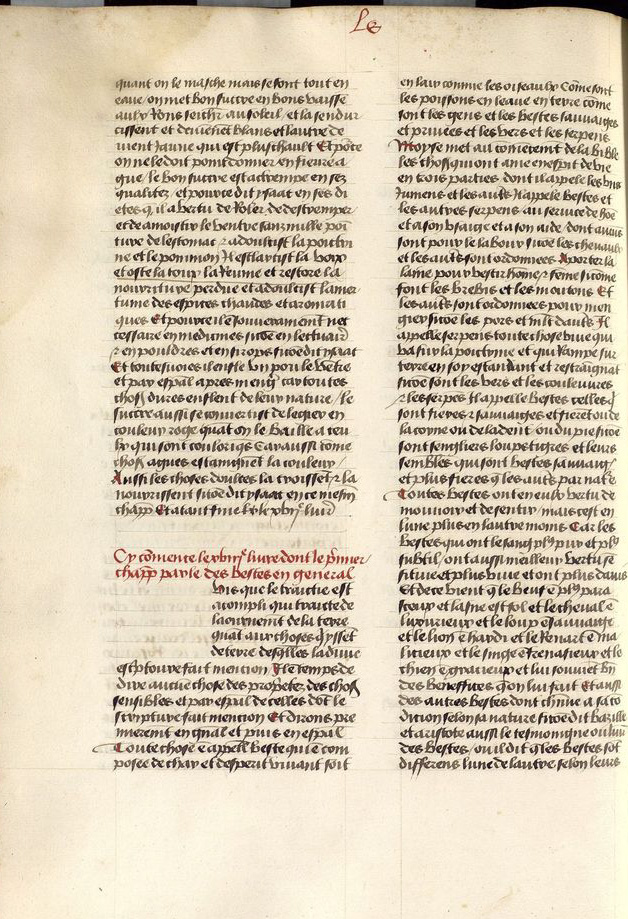 Le
quant on le masche mais se font tout en
eaue / on met bon succre en bons vaisse
aulx
au soleil / et la sendur
cissent et deviennet blans et lautre de
vient jaune qui est plus chault Et pour ce
on ne le doit point donner en fievre a
gue / le bon succre est actrempe en sez
qualitez / et pource dit ysaac en ses di
etes q il a vertu de de destremper
et de amoistir le ventre sanz mulle poi
ture de lestomac / z adoulcist la poictri
ne et le pommon Il esclarcist la voix
et oste la toux la Reume et restore la
nourriture perdue et adoulcist lamer
tume des espices chaudes et aromati
ques Et pource il e souverainement nec
cessaire en medicines sicoe en lectuair
z en pouldres et en sirops sicoe dit ysaac
Et toutesvoies il enfle un pou le ventre
et par espal apres meng car toutes
choses dures enflent de leur nature / Le
succre aussi se convertist de legier en
couleur roge quat on le baille a ceu
lx qui sont coloriqs Car aussi come
choses agues estaingnet la couleur /
Aussi les choses doulces la croisset z la
nourrissent sicoe dit ysaac en ce mesm
chapp Et atant fine le xvii livre
Cy comence le xviii livre dont le pmier
chapp parle des bestes en general
Puis que le traictie est
acompli qui traicte de
laournement de la terre
quat aux choses q yssent
de terre desqlles la divine
escripture fait mention Il e temps de
dire aucune chose des proprietez des choses
sensibles et par espal de celles dot le
scripture fait mention Et dirons pre
mierement en gnal et puis en espal
Toute chose e appell beste qui e com
posee de char et desperit vivant soit
en lair comme les oiseaulx Come sont
les poissons en leaue en terre come
sont les gens et les bestes sauvaiges
et privees et les vers et les serpens
Moyse met au comencemt de la Bible
les choses qui ont ame en esprit de vie
en trois parties dont il appele les uns
Jumens et les auts Il appele bestes et
les autres serpens au service de hoe
et a son usaige et a son aide / dont aucus
sont pour le labour sicoe les chevaulx
et les auts sont ordonnees A porter la
laine pour vestir home z feme sicome
font les brebis et les moutons Et
les auts sont ordonnees pour men
gier sicoe les pors et mlt dauts Il
appelle serpens toute chose vive qui
va sur la poictrine et qui Rampe sur
terre en soy estandant et restraignat
sicoe sont les vers et les couleuvres
z les serpes Il appelle bestes celles q
sont fieres z sauvaiges et fierent ou de
la corne ou de la dent / ou du pie sicoe
sont sengliers loups tigres et leurs
semblables qui sont bestes sauvaiges
et plus fieres q les auts par nature
Toutes bestes ont en eulx vertu de
mouvoir et de sentir / mais cest en
lune plus en lautre moins Car les
bestes qui ont le sang plus pur et plus
subtil / ont aussi meilleur vertu se
sitive et plus vive et ont plus davis
Et de ce vient q le buef e plus para
ceux et lasne est fol et le cheval e
luxurieux et le loup e sauvaige
et le lion e hardi et le Renart e ma
licieux et le singe e trenasieux et le
chien e gracieux et lui souviet bn
des beneffices q on lui fait Et aussi
des autres bestes dont chune a sa co
dicion selon sa nature sicoe dit bazille
et aristote aussi le tesmoingne ou livre
des bestes / ou il dit q les bestes sot
differens lune de lautre selon leurs